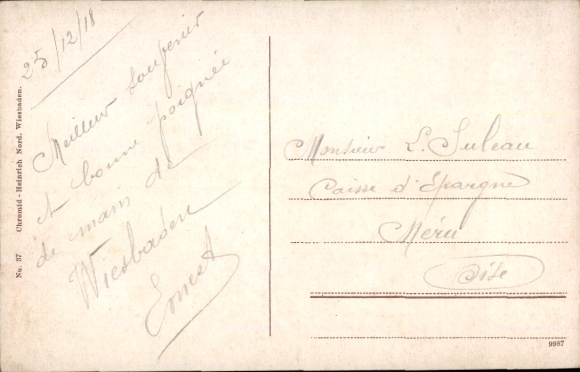 25/12/18
Meilleur Souvenir
et bonne poignée
de main de
Wiesbaden
Ernest
No. 37 Chromid - Heinrich Nord, Wiesbaden.
Monsieur L. Suleau
Caisse d'Epargne
Méru
Oise
9987